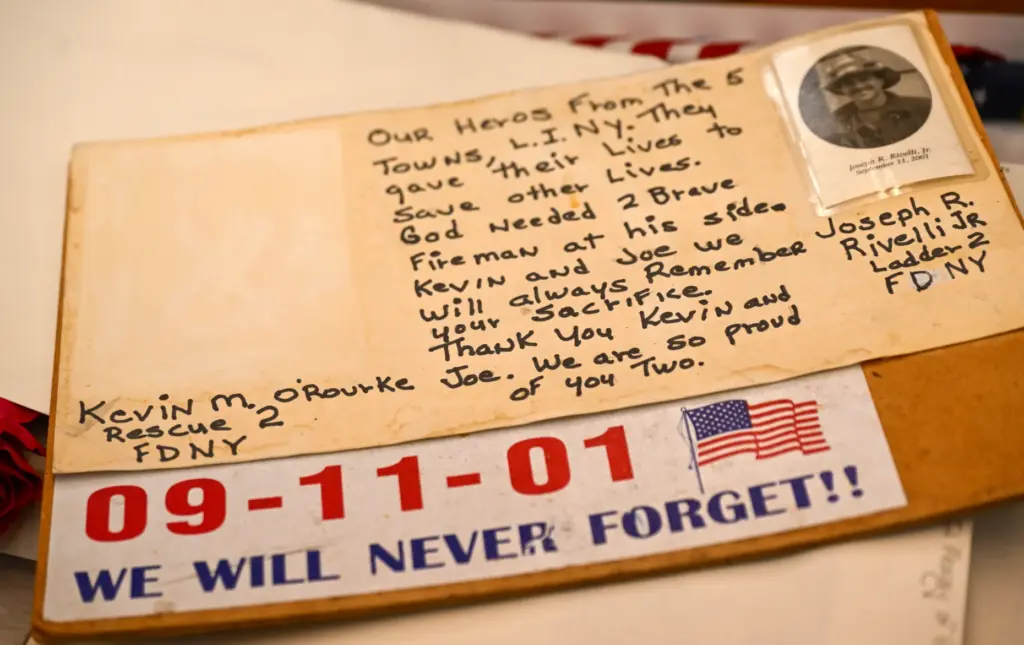 Our Heros From The 5
Towns, L.I. NY. They
gave their Lives to
save other Lives.
God Needed 2 Brave
Fireman at his side.
Kevin and Joe we
will always Remember
your Sacrifice.
Thank You Kevin and
Joe. We are so proud
of you Two.
Joseph R. Rivelli, Jr.
September 11, 2001
Joseph R.
Rivelli JR
Ladder 2
FDNY
Kevin M. O'Rourke
Rescue 2
FDNY
09-11-01
WE WILL NEVER FORGET!!